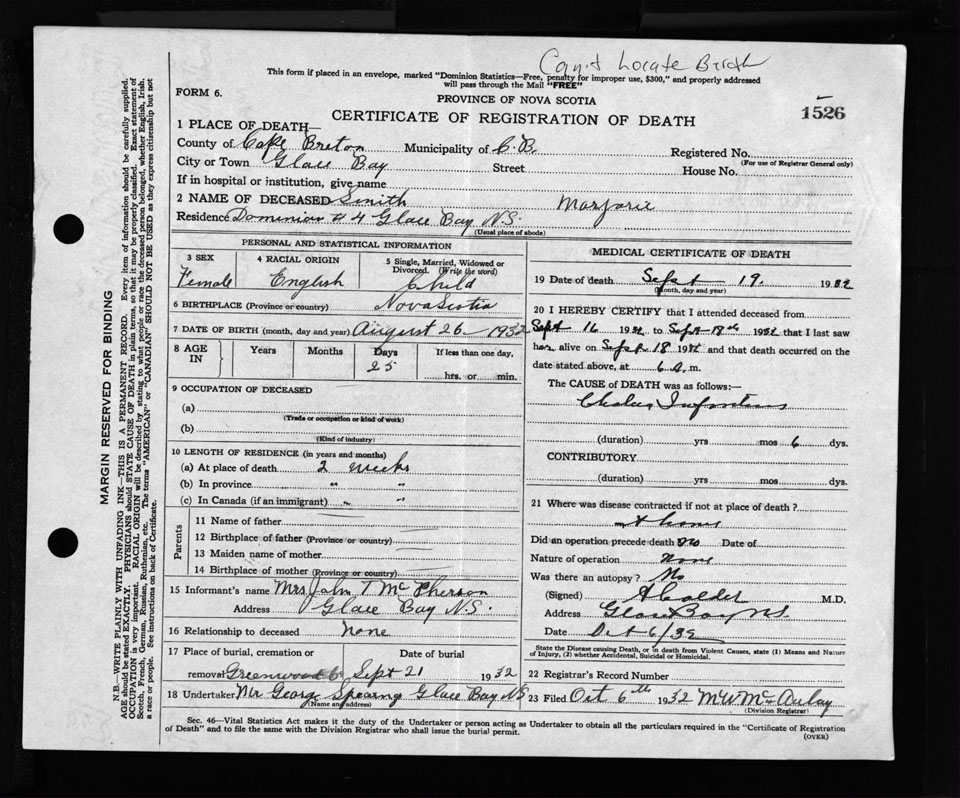 Can't Locate Birth
This form if placed in an envelope, marked "Dominion Statistics—Free, penalty for improper use, $300," and properly addressed
will pass through the Mail "FREE"
FORM 6.
PROVINCE OF NOVA SCOTIA
1526
CERTIFICATE OF REGISTRATION OF DEATH
1 PLACE OF DEATH—
County of Cape Breton Municipality of C.B. Registered No.
(For use of Registrar General only)
City or Town Glace Bay Street House No.
If in hospital or institution, give name
2 NAME OF DECEASED Smith Marjorie
Residence Dominion #4 Glace Bay N.S.
(Usual place of abode)
PERSONAL AND STATISTICAL INFORMATION
3 SEX
Female
4 RACIAL ORIGIN
English
5 Single, Married, Widowed or
Divorced. (Write the word)
Child
6 BIRTHPLACE (Province or country) Nova Scotia
7 DATE OF BIRTH (month, day and year) August 26 - 1932
8 AGE
IN
Years Months Days If less than one day,
25 hrs. or min.
9 OCCUPATION OF DECEASED
(a)
(Trade or occupation or kind of work)
(b)
(Kind of industry)
10 LENGTH OF RESIDENCE (in years and months)
(a) At place of death 2 weeks
(b) In province " "
(c) In Canada (if an immigrant) " "
Parents
11 Name of father
12 Birthplace of father (Province or country)
13 Maiden name of mother
14 Birthplace of mother (Province or country)
15 Informant's name Mrs John T McPherson
Address Glace Bay N.S.
16 Relationship to deceased none
17 Place of burial, cremation or Date of burial
removal Greenwood Sept 21 1932
18 Undertaker Mr George Spearing Glace Bay NS
(Name and address)
MEDICAL CERTIFICATE OF DEATH
19 Date of death Sept 19. 1932
(Month, day and year)
20 I HEREBY CERTIFY that I attended deceased from
Sept 16 1932 to Sept 18th 1932 that I last saw
her alive on Sept 18 1932 and that death occurred on the
date stated above, at 6 a.m.
The CAUSE of DEATH was as follows:—
Cholera Infantum
(duration) yrs mos 6 dys.
CONTRIBUTORY
(duration) yrs mos dys.
21 Where was disease contracted if not at place of death?
at home
Did an operation precede death? no Date of
Nature of operation None
Was there an autopsy? No
(Signed) A Calder M.D.
Address Glace Bay NS.
Date Oct 6/32
State the Disease causing Death, or in death from Violent Causes, state (1) Means and Nature
of Injury, (2) whether Accidental, Suicidal or Homicidal.
22 Registrar's Record Number
23 Filed Oct 6th 1932 M W McAulay
(Division Registrar)
Sec. 46—Vital Statistics Act makes it the duty of the Undertaker or person acting as Undertaker to obtain all the particulars required in the "Certificate of Registration
of Death" and to file the same with the Division Registrar who shall issue the burial permit.
(OVER)
MARGIN RESERVED FOR BINDING
N.B.—WRITE PLAINLY WITH UNFADING INK—THIS IS A PERMANENT RECORD. Every item of information should be carefully supplied.
AGE should be stated EXACTLY. PHYSICIANS should STATE CAUSE OF DEATH in plain terms, so that it may be properly classified. Exact statement of
OCCUPATION is very important. RACIAL ORIGIN will be described by stating to what people or race the deceased person belonged, whether English, Irish,
Scotch, French, German, Russian, Ruthenian, etc. The terms "AMERICAN" or "CANADIAN" SHOULD NOT BE USED as they express citizenship but not
a race or people. See instructions on back of Certificate.